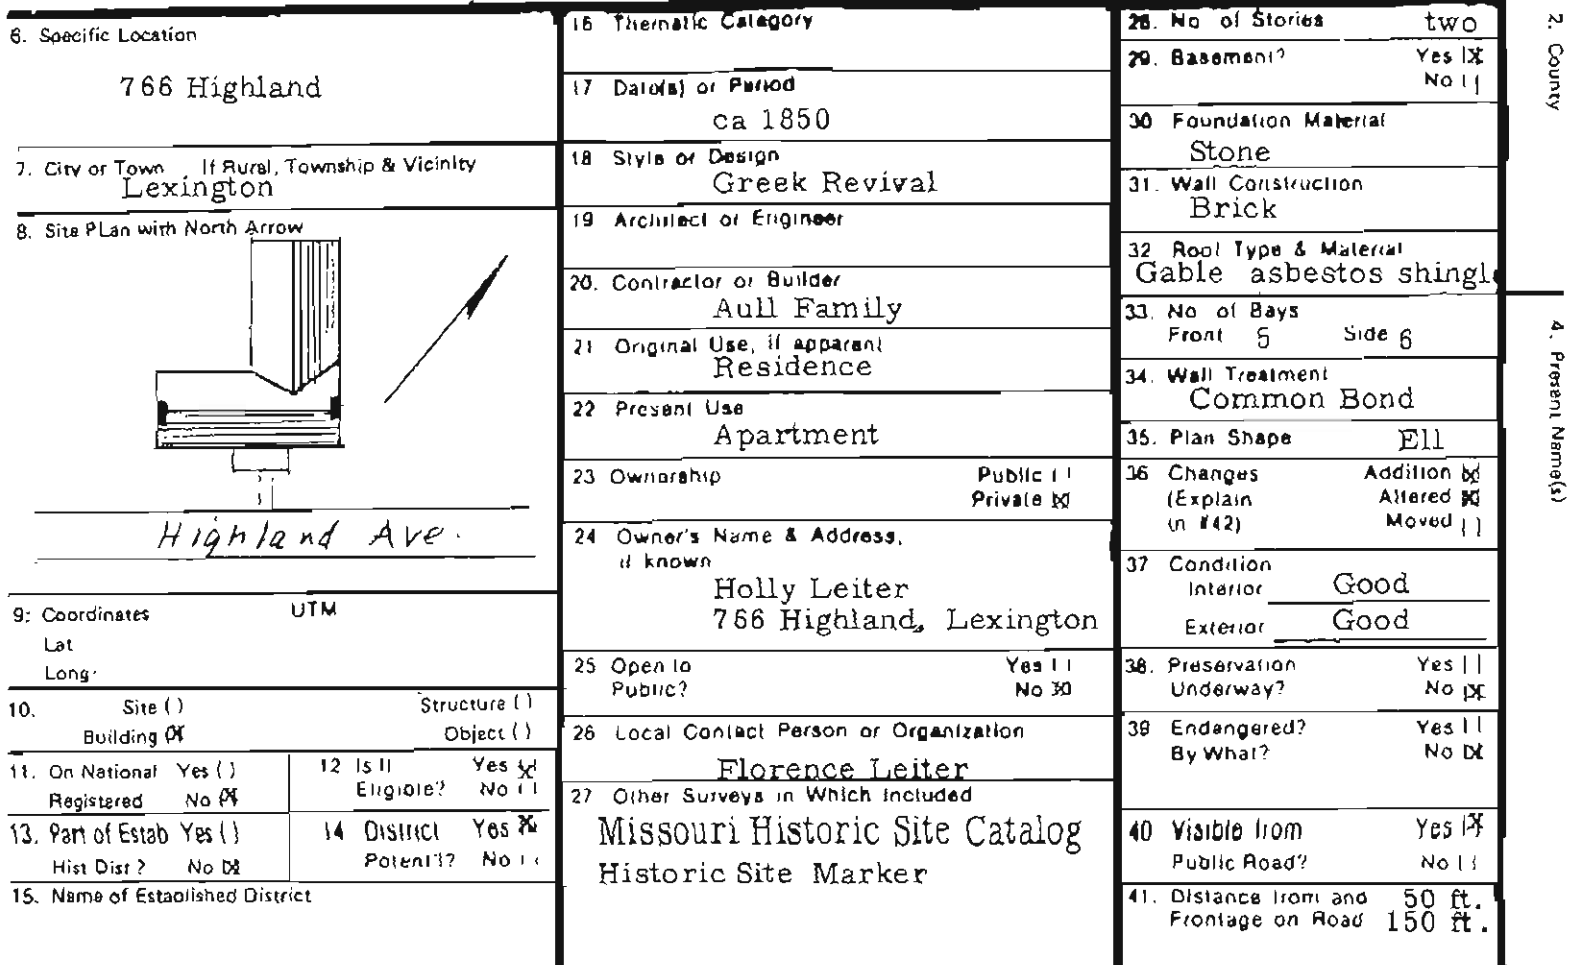 6. Specific Location
766 Highland
7. City or Town If Rural, Township & Vicinity
Lexington
8. Site PLan with North Arrow
Highland Ave.
9: Coordinates UTM
Lat
Long:
10. Site ( ) Structure ( )
Building (X) Object ( )
11. On National Yes ( )
Registered No (X)
12 Is It Yes (X)
Eligible? No ( )
13. Part of Estab Yes ( )
Hist Dist? No (X)
14 District Yes (X)
Potent'l? No ( )
15. Name of Established District
16 Thematic Category
17 Date(s) or Period
ca 1850
18 Style or Design
Greek Revival
19 Architect or Engineer
20. Contractor or Builder
Aull Family
21 Original Use, if apparent
Residence
22 Present Use
Apartment
23 Ownership Public ( )
Private (X)
24 Owner's Name & Address,
if known
Holly Leiter
766 Highland, Lexington
25 Open to Yes ( )
Public? No (X)
26 Local Contact Person or Organization
Florence Leiter
27 Other Surveys in Which Included
Missouri Historic Site Catalog
Historic Site Marker
28. No of Stories two
29. Basement? Yes (X)
No ( )
30 Foundation Material
Stone
31. Wall Construction
Brick
32 Roof Type & Material
Gable asbestos shingle
33. No of Bays
Front 5 Side 6
34. Wall Treatment
Common Bond
35. Plan Shape Ell
36 Changes Addition (X)
(Explain Altered (X)
in #42) Moved ( )
37 Condition
Interior Good
Exterior Good
38. Preservation Yes ( )
Underway? No (X)
39 Endangered? Yes ( )
By What? No (X)
40 Visible from Yes (X)
Public Road? No ( )
41. Distance from and 50 ft.
Frontage on Road 150 ft.
2. County
4. Present Name(s)